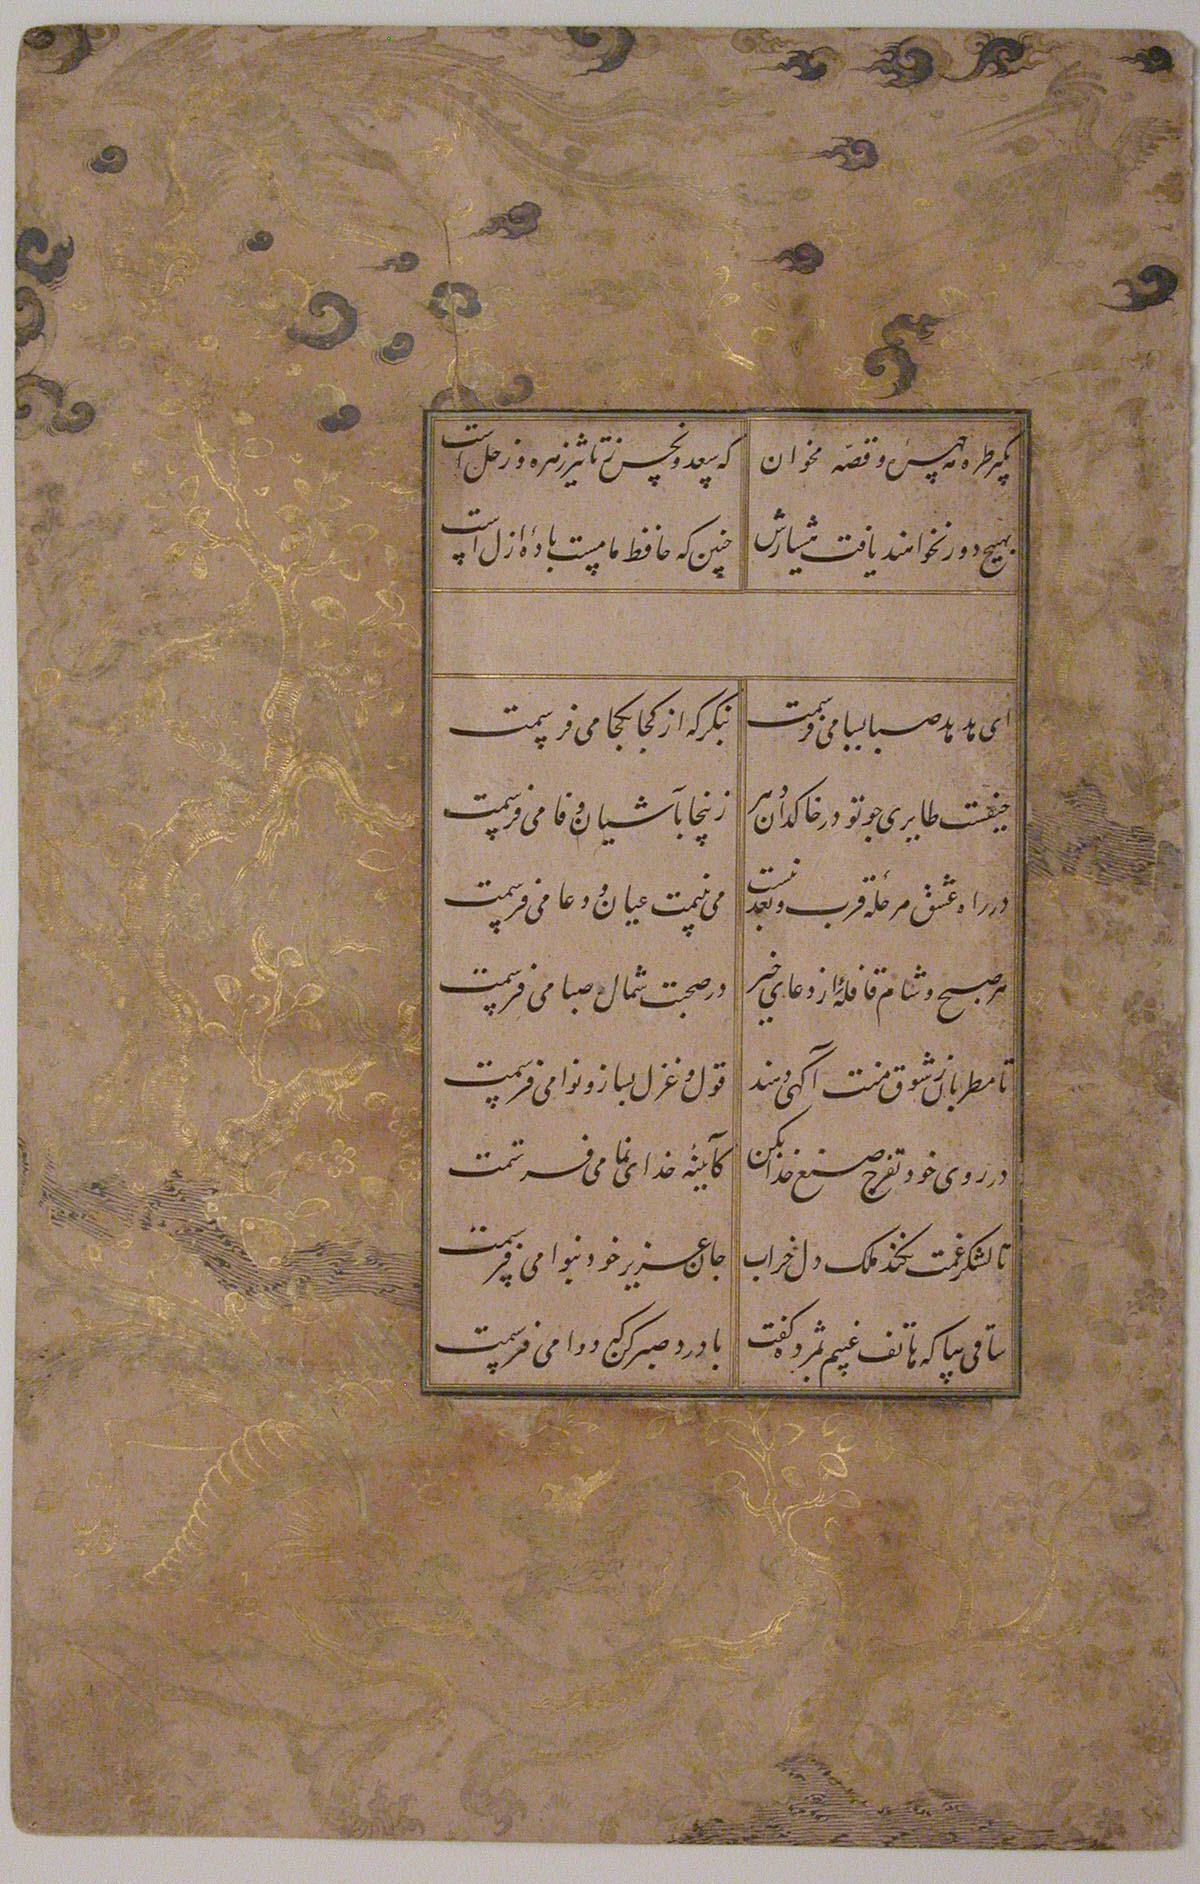 بگیر طره مه چهرهٔ و قصّه مخوان که سعد و نحس ز تاثیر زهره و زحل است
بهیچ دور نخواهند یافت هشیارش چنین که حافظ ما مست بادهٔ ازل است
ای هدهد صبا بسبا می فرستمت بنگر که از کجا بکجا می فرستمت
حیفست طایری چو تو در خاکدان دهر زینجا بآشیان وفا می فرستمت
در راه عشق مرحلهٔ قرب و بعد نیست می بینمت عیان و دعا می فرستمت
هر صبح و شام قافلهٔ از دعای خیر در صحبت شمال و صبا می فرستمت
تا مطربان ز شوق منت آگهی دهند قول و غزل بساز و نوا می فرستمت
در روی خود تفرج صنع خدا بکن کآیینهٔ خدای نما می فرستمت
تا لشکر غمت نکند ملک دل خراب جان عزیز خود بنوا می فرستمت
ساقی بیا که هاتف غیبم بمژده گفت با درد صبر کن که دوا می فرستمت